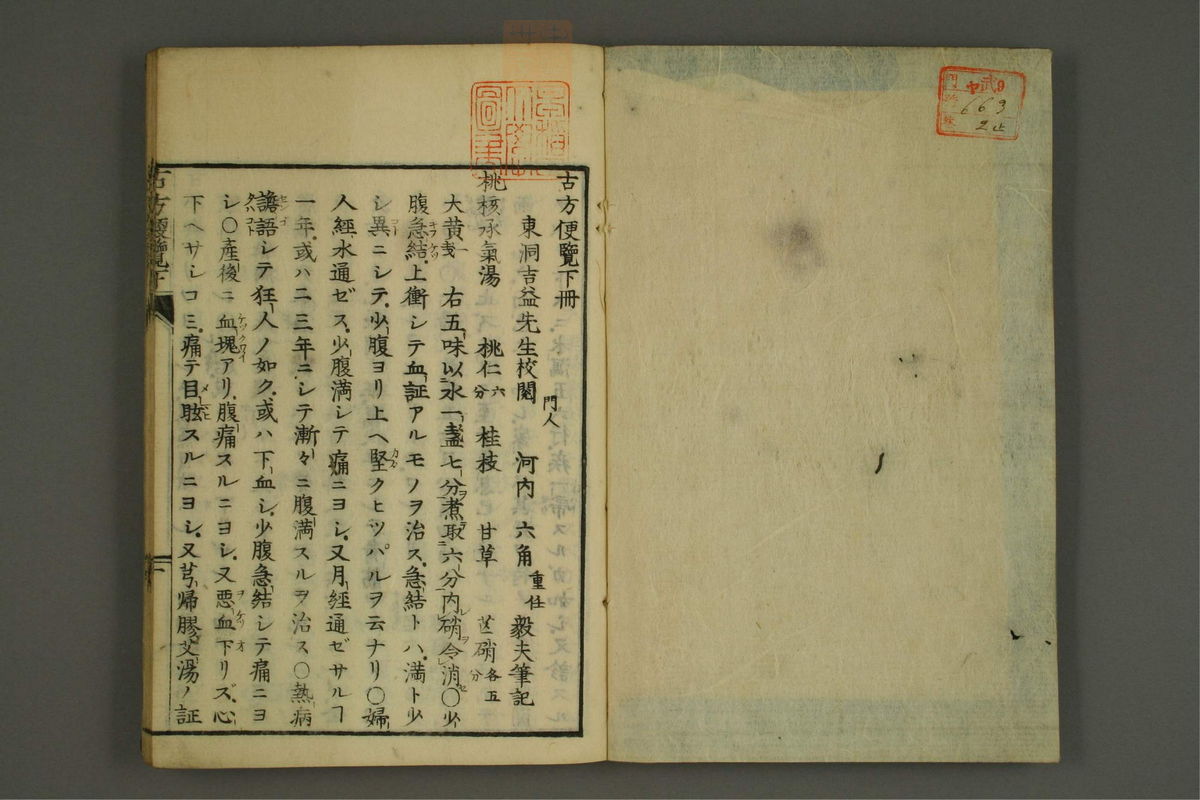 古方便覽下冊
東洞吉益先生校閲 門人 河内 六角重任毅夫筆記
桃核承氣湯 桃仁六分 桂枝 甘草 芒硝各五分
大黄戔 右五味以水一盞七分煮取六分内硝令消〇少
腹急結上衝シテ血証アルモノヲ治ス急結トハ満ト少
シ異ニシテ少腹ヨリ上ヘ堅クヒツパルヲ云ナリ〇婦
人經水通ゼス少腹満シテ痛ニヨシ又月經通ゼサルヿ
一年或ハ二三年ニシテ漸々ニ腹満スルヲ治ス〇熱病
譫語シテ狂人ノ如ク或ハ下血シ少腹急結シテ痛ニヨ
シ〇産後ニ血塊アリ腹痛スルニヨシ又悪血下リズ心
下ヘサシコミ痛テ目眩スルニヨシ又芎帰膠艾湯ノ証
古方便覽下
武9
663
2止